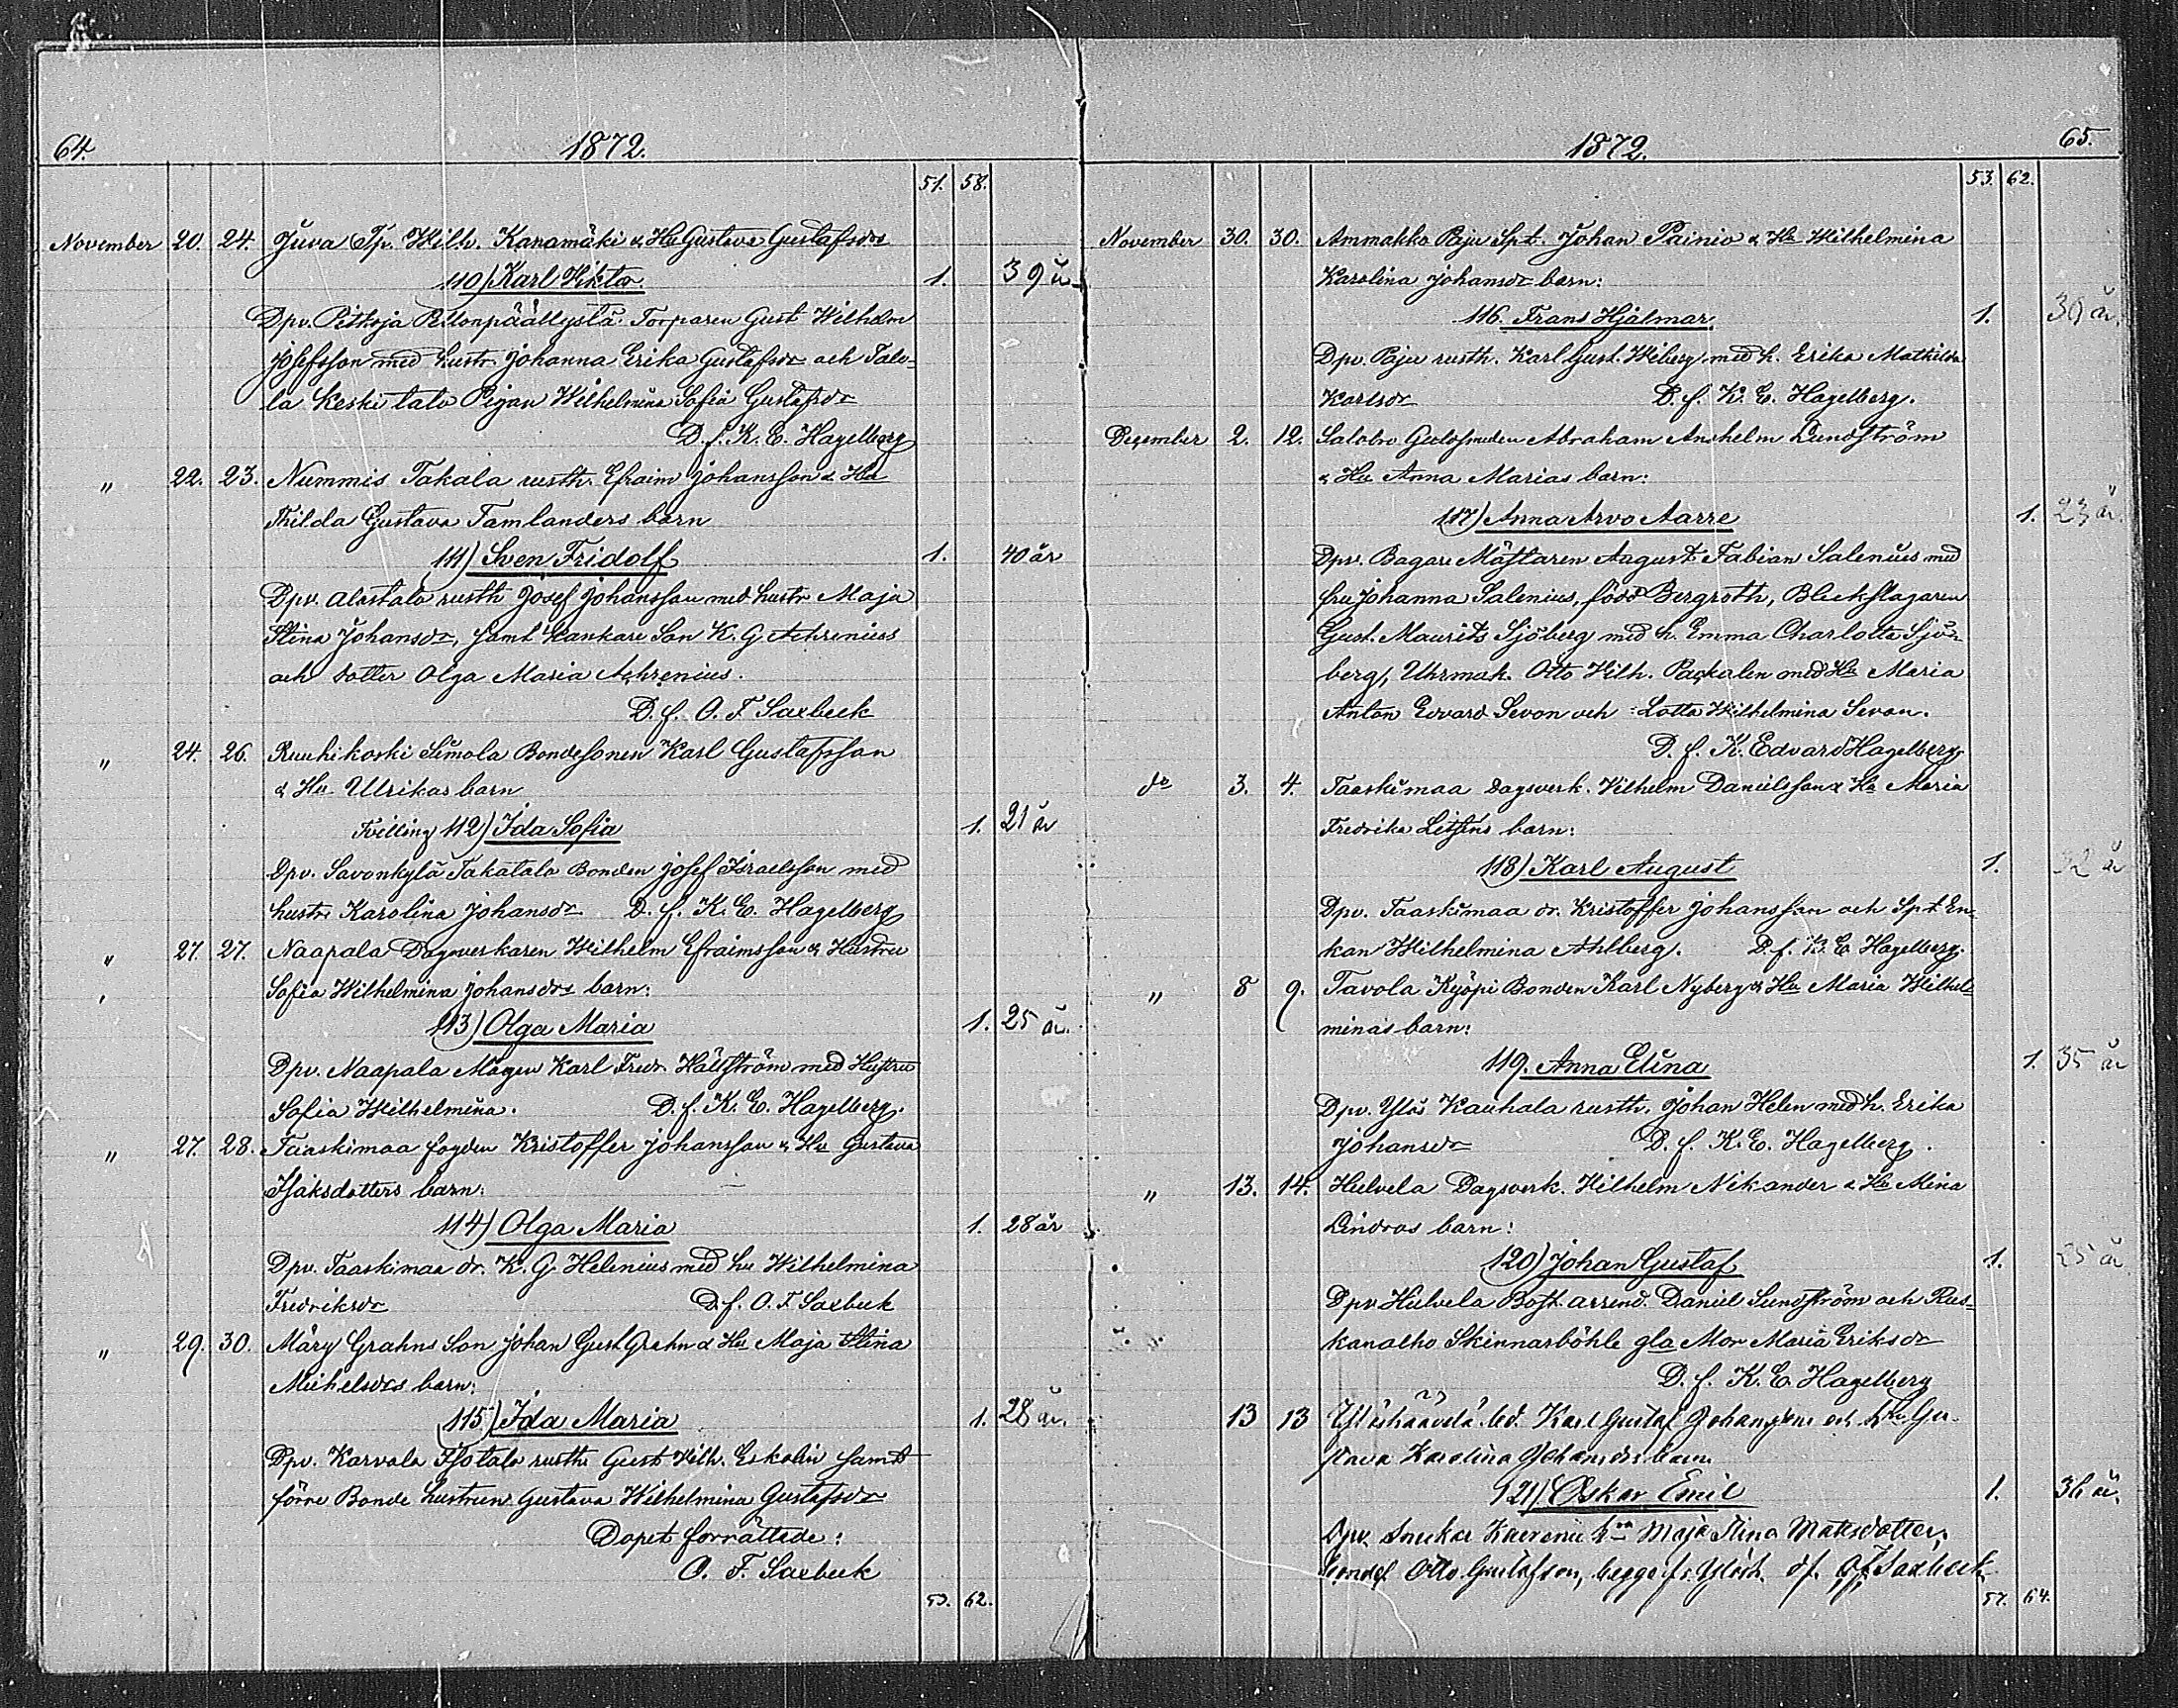 64. 1872.
51. 58.
November 20. 24. Juva Tp. Wilh. Kanamäki & Hu Gustava Gustafsdrs
110) Karl Viktor 1. 39 år
Dpv. Pellonpäällystä Torparen Gust Wilhelm
Josefsson med hustr Johanna Erika Gustafsdr och Talo-
la Keski talo Pigan Wilhelmina Sofia Gustafsdr
D. f. K. E. Hagelberg
" 22. 23. Nummis Takala rusth. Efraim Johansson & Hu
Thilda Gustava Tamlanders barn
111) Sven Fridolf 1. 40 år
Dpv. Alastalo rusth Josef Johansson med hustr Maja
Stina Johansdr, samt Son K. G. Achrenius
och dotter Olga Maria Achrenius.
D. f. O. F. Saxbeck
" 24. 26. Ruuhikoski Simola Bondesonen Karl Gustafsson
& Hu Ulrikas barn
Tvilling 112) Ida Sofia 1. 21 år
Dpv. Savonkylä Takatalo Bonden Josef Israelsson med
hustr Karolina Johansdr D. f. K. E. Hagelberg
" 27. 27. Naapala Dagsverkaren Wilhelm Efraimsson & Hustru
Sofia Wilhelmina Johansdrs barn:
113) Olga Maria 1. 25 år.
Dpv. Naapala Mågen Karl Fredr Hällström med Hustru
Sofia Wilhelmina. D. f. K. E. Hagelberg.
" 27. 28. Taaskimaa fogden Kristoffer Johansson & Hu Gustava
Isaksdotters barn:
114) Olga Maria 1. 28 år
Dpv. Taaskimaa dr. K. G. Helenius med hu Wilhelmina
Fredriksdr D. f. O. F. Saxbeck
" 29. 30. Märy Grahns Son Johan Gust Grahn & Hu Maja Stina
Michelsdrs barn:
115) Ida Maria 1. 28 år.
Dpv. Karvala Isotalo rusth Gust Wilh. Eskolin samt
förre Bonde hustrun Gustava Wilhelmina Gustafsdr
Dopet förrättade:
O. F. Saxbeck
53. 62.
1872. 65.
53. 62.
November 30. 30. Ammakko Paju Spt. Johan Painio & Hu Wilhelmina
Karolina Johansdr barn:
116. Frans Hjalmar 1. 30 år.
Dpv. Paju rusth. Karl Gust. Wiberg med h. Erika Mathilda
Karlsdr D. f. K. E. Hagelberg.
December 2. 12. Salobo Abraham Anshelm Lundström
& Hu Anna Marias barn:
117) Anna Arvo Aarre 1. 23 år.
Dpv. Bagare Mästaren August Fabian Salenius med
fru Johanna Salenius, född Bergroth, Bleckslagaren
Gust. Maurits Sjöberg med h. Emma Charlotta Sjö-
berg, Uhrmak. Otto Wilh. Packalen med Hu Maria
Anton Edvard Sevon och Lotta Wilhelmina Sevon.
D. f. K. Edvard Hagelberg
do 3. 4. Taaskimaa dagsverk. Wilhelm Danielsson & Hu Maria
Fredrika Litséns barn:
118) Karl August 1. 32 år
Dpv. Taaskimaa dr. Kristoffer Johansson och Spt En-
kan Wilhelmina Ahlberg. D. f. K. E. Hagelberg.
" 8 9. Tavola Kyöpi Bonden Karl Nyberg & Hu Maria Wilhel-
minas barn:
119. Anna Elina 1. 35 år
Dpv. Ylös Kauhala rusth. Johan Helen med h. Erika
Johansdr D. f. K. E. Hagelberg.
" 13. 14. Hulvela Dagsverk. Wilhelm Nikander & Hu Mina
Lindros barn:
120) Johan Gustaf 1. 25 år
Dpv Hulvela Bost. arrend. Daniel Sundström och Rus-
kanalho Skinnarböhle gla Mor Maria Eriksdr
D. f. K. E. Hagelberg
13 13 Karl Gustaf Johansson och hu Gu-
stava Karolina Johansdrs barn
121) Oskar Emil 1. 36 år.
Dpv. Snickar hu Maja Stina Matsdotter,
Otto Gustafsson, begge fr. df. O. F. Saxbeck
57. 64.